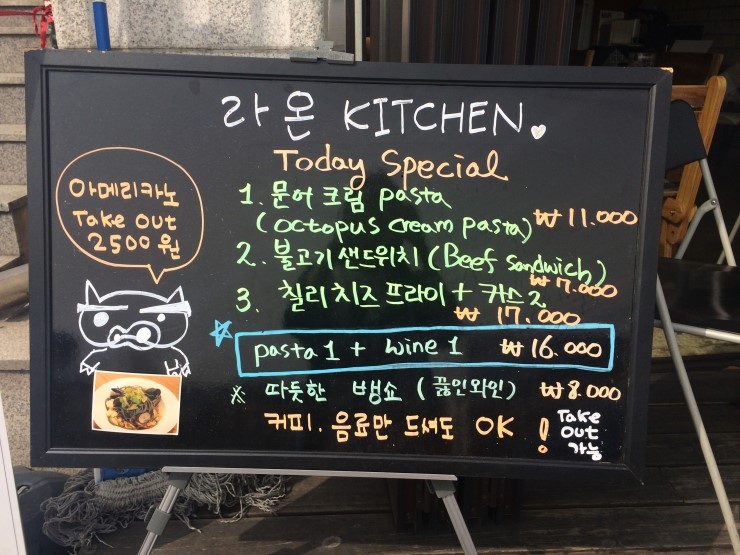 라온 KITCHEN.
Today Special
아메리카노
Take out
2500원
1. 문어 크림 pasta
(octopus cream pasta) ₩ 11.000
2. 불고기 샌드위치 (Beef Sandwich)
₩ 7.000
3. 칠리 치즈 프라이 + 카스 2
₩ 17.000
pasta 1 + wine 1 ₩ 16.000
※ 따듯한 뱅쇼 (끓인와인) ₩ 8.000
커피. 음료만 드셔도 OK !
Take
out
가능